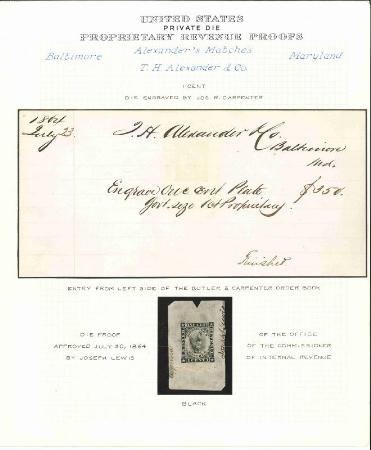 UNITED STATES
PRIVATE DIE
PROPRIETARY REVENUE PROOFS
Baltimore Alexander's Matches Maryland
T. H. Alexander & Co.
1 CENT
DIE ENGRAVED BY JOS. R. CARPENTER
1864
July 23. T. H. Alexander & Co.
Baltimore
Md.
Engrave One Cent Plate $350.
Govt. size 1ct Proprietary.
Finished
ENTRY FROM LEFT SIDE OF THE BUTLER & CARPENTER ORDER BOOK
DIE PROOF
APPROVED JULY 30, 1864
BY JOSEPH LEWIS
OF THE OFFICE
OF THE COMMISSIONER
OF INTERNAL REVENUE
BLACK